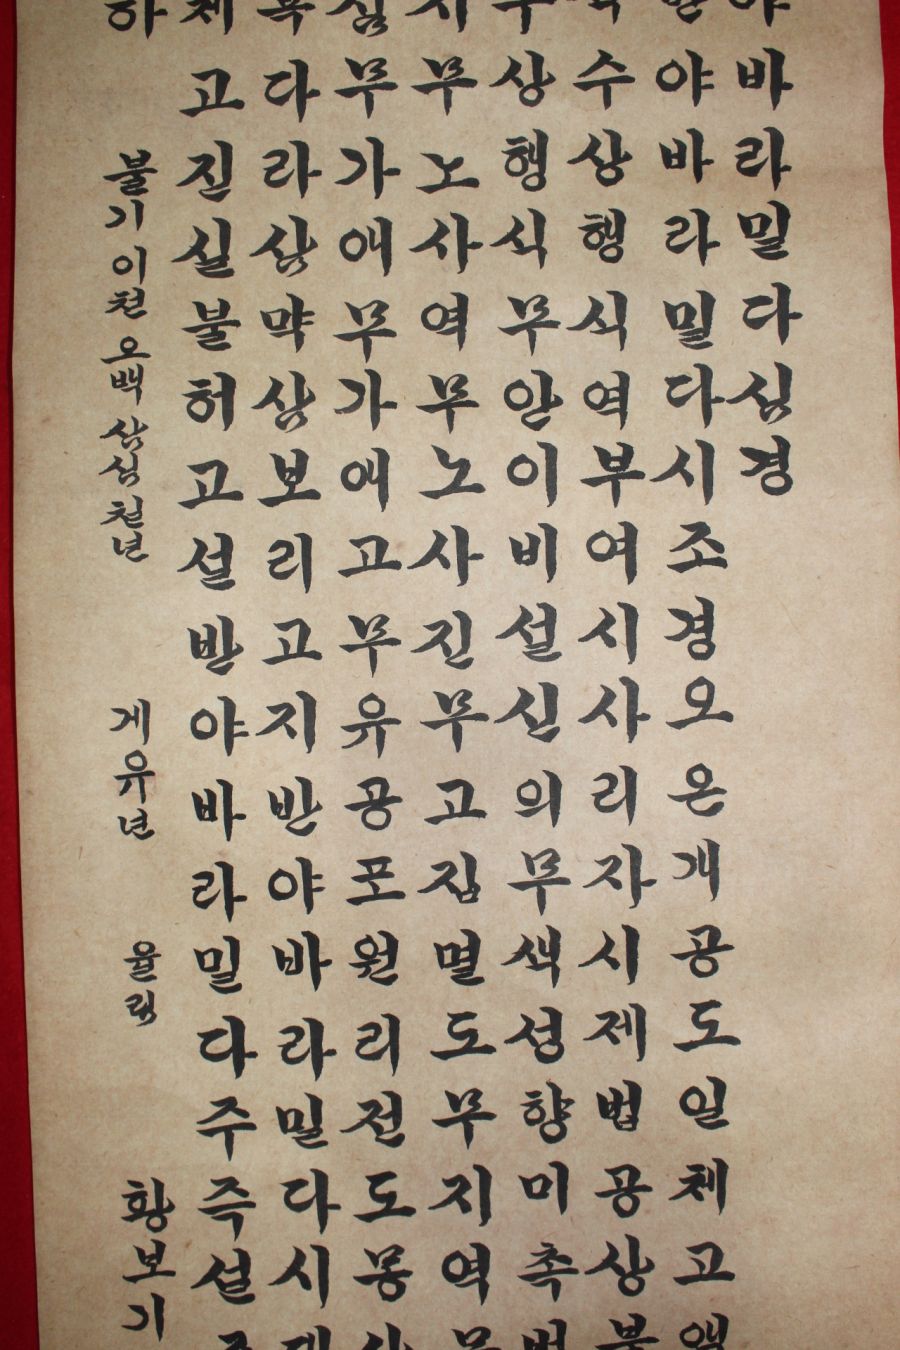 야바라밀다심경
반야바라밀다시조경오온개공도일체고액
색수상행식역부여시사리자시제법공상불
수상행식무안이비설신의무색성향미촉법
지무노사역무노사진무고집멸도무지역무
심무가애무가애고무유공포원리전도몽상
뇩다라삼먁삼보리고지반야바라밀다시대
체고진실불허고설반야바라밀다주즉설주
하 불기이천오백삼십칠년 게유년 율림 황보기